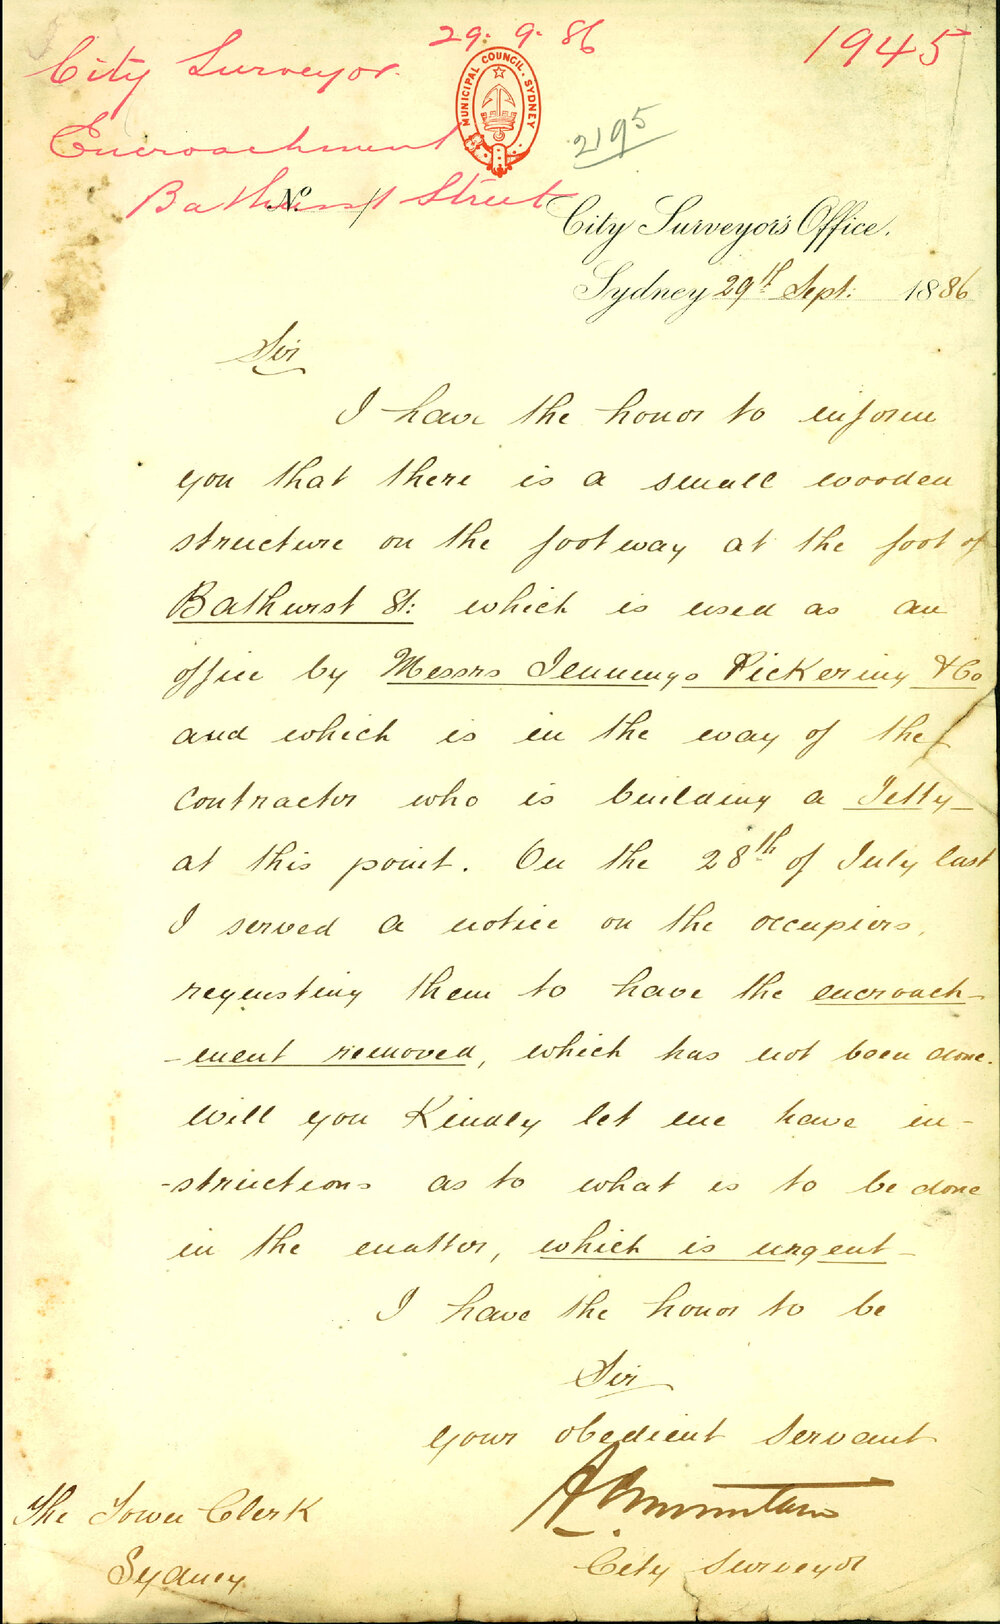 29. 9. 86
1945
City Surveyor.
MUNICIPAL COUNCIL. SYDNEY
2195
Encroachment
Bathurst Street
No.
City Surveyor's Office,
Sydney 29th Sept: 1886
Sir
I have the honor to inform
you that there is a small wooden
structure on the footway at the foot of
Bathurst St: which is used as an
office by Messrs Jennings Pickering & Co
and which is in the way of the
contractor who is building a Jetty
at this point. On the 28th of July last
I served a notice on the occupiers,
requesting them to have the encroach-
-ment removed, which has not been done.
Will you Kindly let me have in-
-structions as to what is to be done
in the matter, which is urgent-
I have the honor to be
Sir
your obedient servant
A C Mountain
City Surveyor
The Town Clerk
Sydney